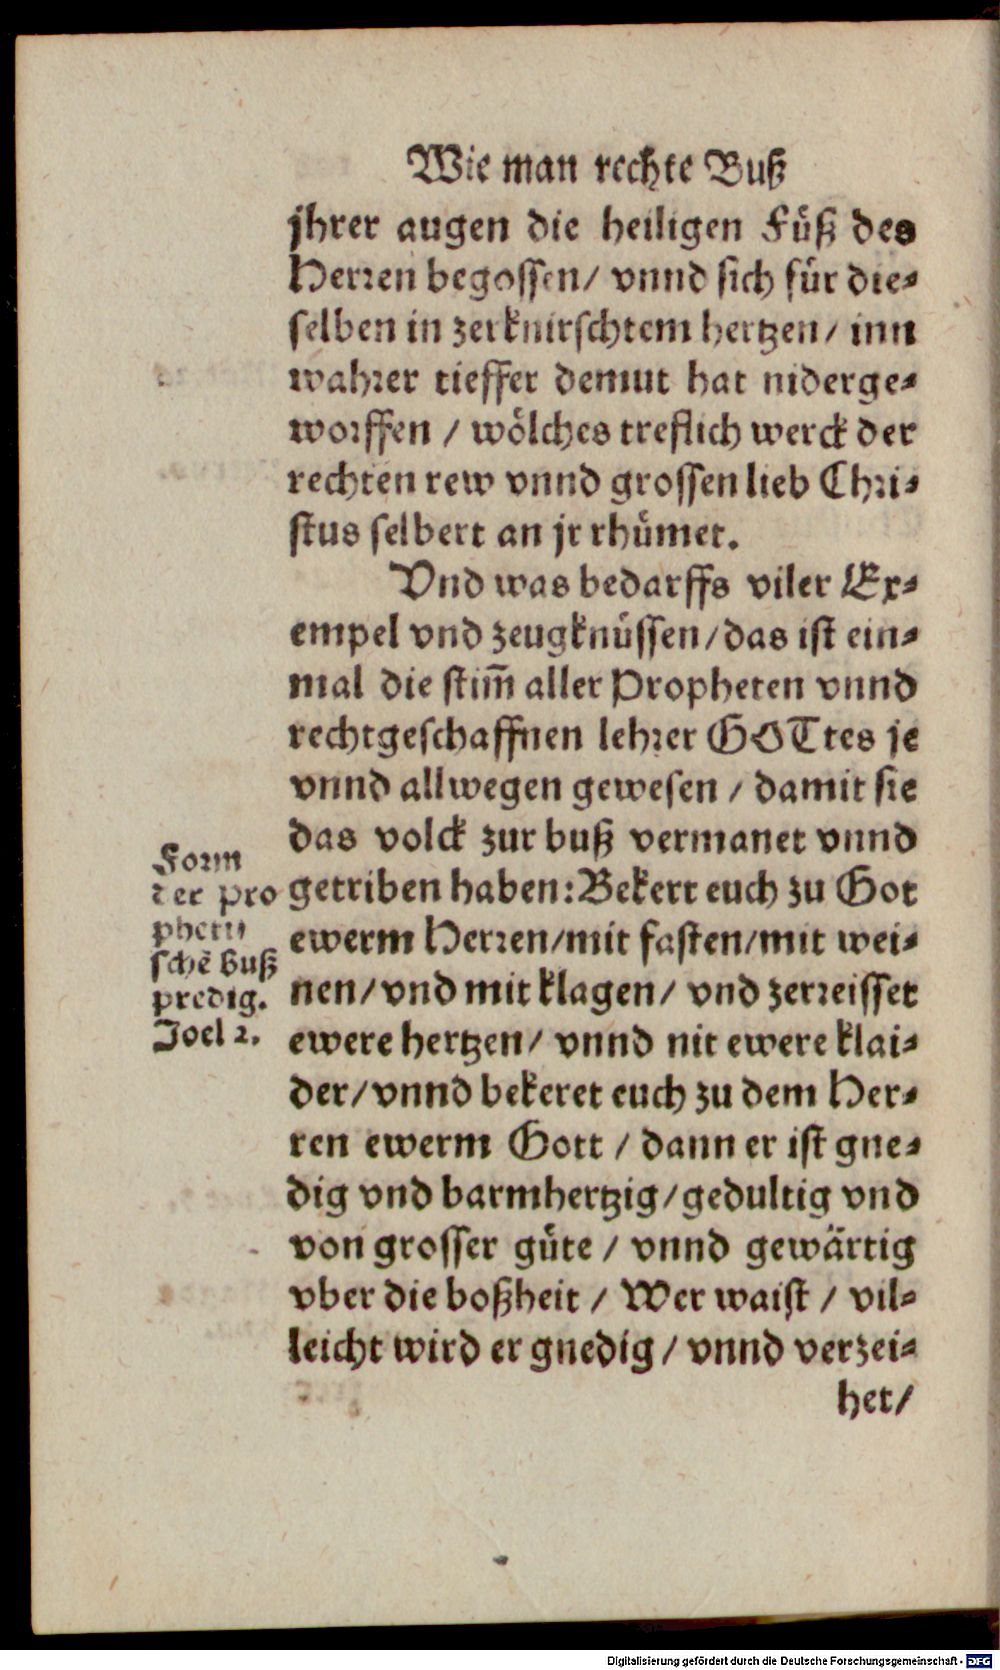 Wie man rechte Buß
jhrer augen die heiligen Fuͤß des
Herꝛen begossen/ vnnd sich fuͤr die⸗
selben in zerknirschtem hertzen/ inn
wahꝛer tieffer demut hat niderge⸗
woꝛffen / woͤlches treflich werck der
rechten rew vnnd grossen lieb Chꝛi⸗
stus selbert an jr rhuͤmet.
Vnd was bedarffs viler Ex⸗
empel vnd zeugknuͤssen/das ist ein⸗
mal die stim̃ aller Propheten vnnd
rechtgeschaffnen lehꝛer GOTtes je
vnnd allwegen gewesen / damit sie
das volck zur buß vermanet vnnd
getriben haben: Bekert euch zu Got
ewerm Herꝛen/mit fasten/mit wei⸗
nen/vnd mit klagen/ vnd zerꝛeisset
ewere hertzen/ vnnd nit ewere klai⸗
der/vnnd bekeret euch zu dem Her⸗
ren ewerm Gott / dann er ist gne⸗
dig vnd barmhertzig/gedultig vnd
von grosser guͤte / vnnd gewaͤrtig
vber die boßheit / Wer waist / vil⸗
leicht wird er gnedig / vnnd verzei⸗
het/
Foꝛm
der Pro
pheti⸗
schẽ Buß
predig.
Joel 2.
Digitalisierung gefördert durch die Deutsche Forschungsgemeinschaft - DFG